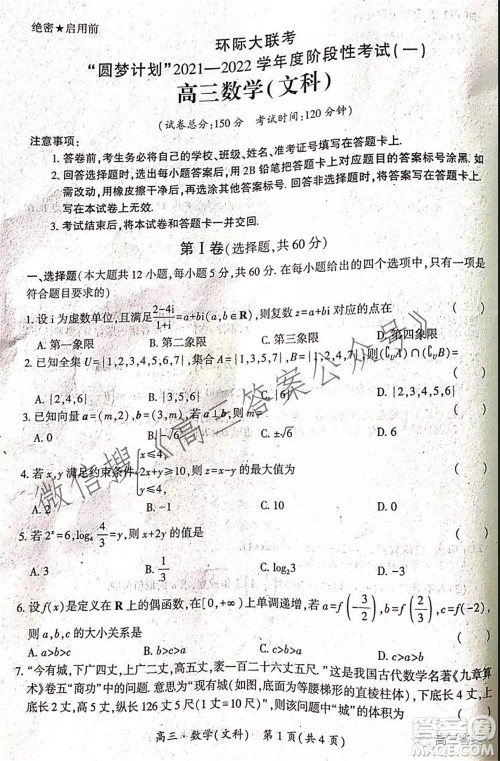 绝密★启用前
环际大联考
“圆梦计划”2021—2022学年度阶段性考试(一)
高三数学(文科)
(试卷总分:150分 考试时间:120分钟)
注意事项:
1. 答卷前,考生务必将自己的学校、班级、姓名、准考证号填写在答题卡上.
2. 回答选择题时,选出每小题答案后,用2B铅笔把答题卡上对应题目的答案标号涂黑.如需改动,用橡皮擦干净后,再选涂其他答案标号.回答非选择题时,将答案写在答题卡上,写在本试卷上无效.
3. 考试结束后,将本试卷和答题卡一并交回.
第Ⅰ卷(选择题,共60分)
一、选择题(本大题共12小题,每小题5分,共60分.在每小题给出的四个选项中,只有一项是符合题目要求的)
1. 设i为虚数单位,且满足(2-4i)/(1+i)=a+bi(a,b∈R),则复数a+bi在 ( )
A. 第一象限 B. 第二象限 C. 第三象限 D. 第四象限
2. 已知全集U={1,2,3,4,5,6,7},集合A={1,3,5,7},B={1,2,4,7},则(∁UA)∩(∁UB)= ( )
A. {1,2,3,4,5,6} B. {3,5} C. {6} D. {2,4,5,6}
3. 已知向量a=(2,m),b=(3,m),若a⊥b,则m= ( )
A. 0 B. C. ±√6 D.
4. 若x,y满足约束条件 2x+y≥10, 则z=x-y的最大值为 ( )
A. 0 B. 5 C. D.
5. 若2ˣ=6,log₄ 4/3=y,则x+2y的值是 ( )
A. 3 B. 1/3 C. D.
6. 设f(x)是定义在R上的偶函数,在[0,+∞)上单调递增,若a=f(-3/2),b=f(2/3),c=f(-2),则a,b,c的大小关系为 ( )
A. b>c>a B. b>a>c C. a>c>b D. c>a>b
7. “今有城,下广四丈,上广二丈,高五丈,袤一百二十六丈五尺.”这是我国古代数学名著《九章算术》卷五“商功”中的问题.意思为“现有城(如图,等腰梯形的直棱柱体),下底长4丈,上底长2丈,高5丈,纵长126丈5尺(1丈=10尺)”,则该问题中“城”的体积等于
高三·数学(文科) 第1页(共4页)
微信搜《高三答案公众号》